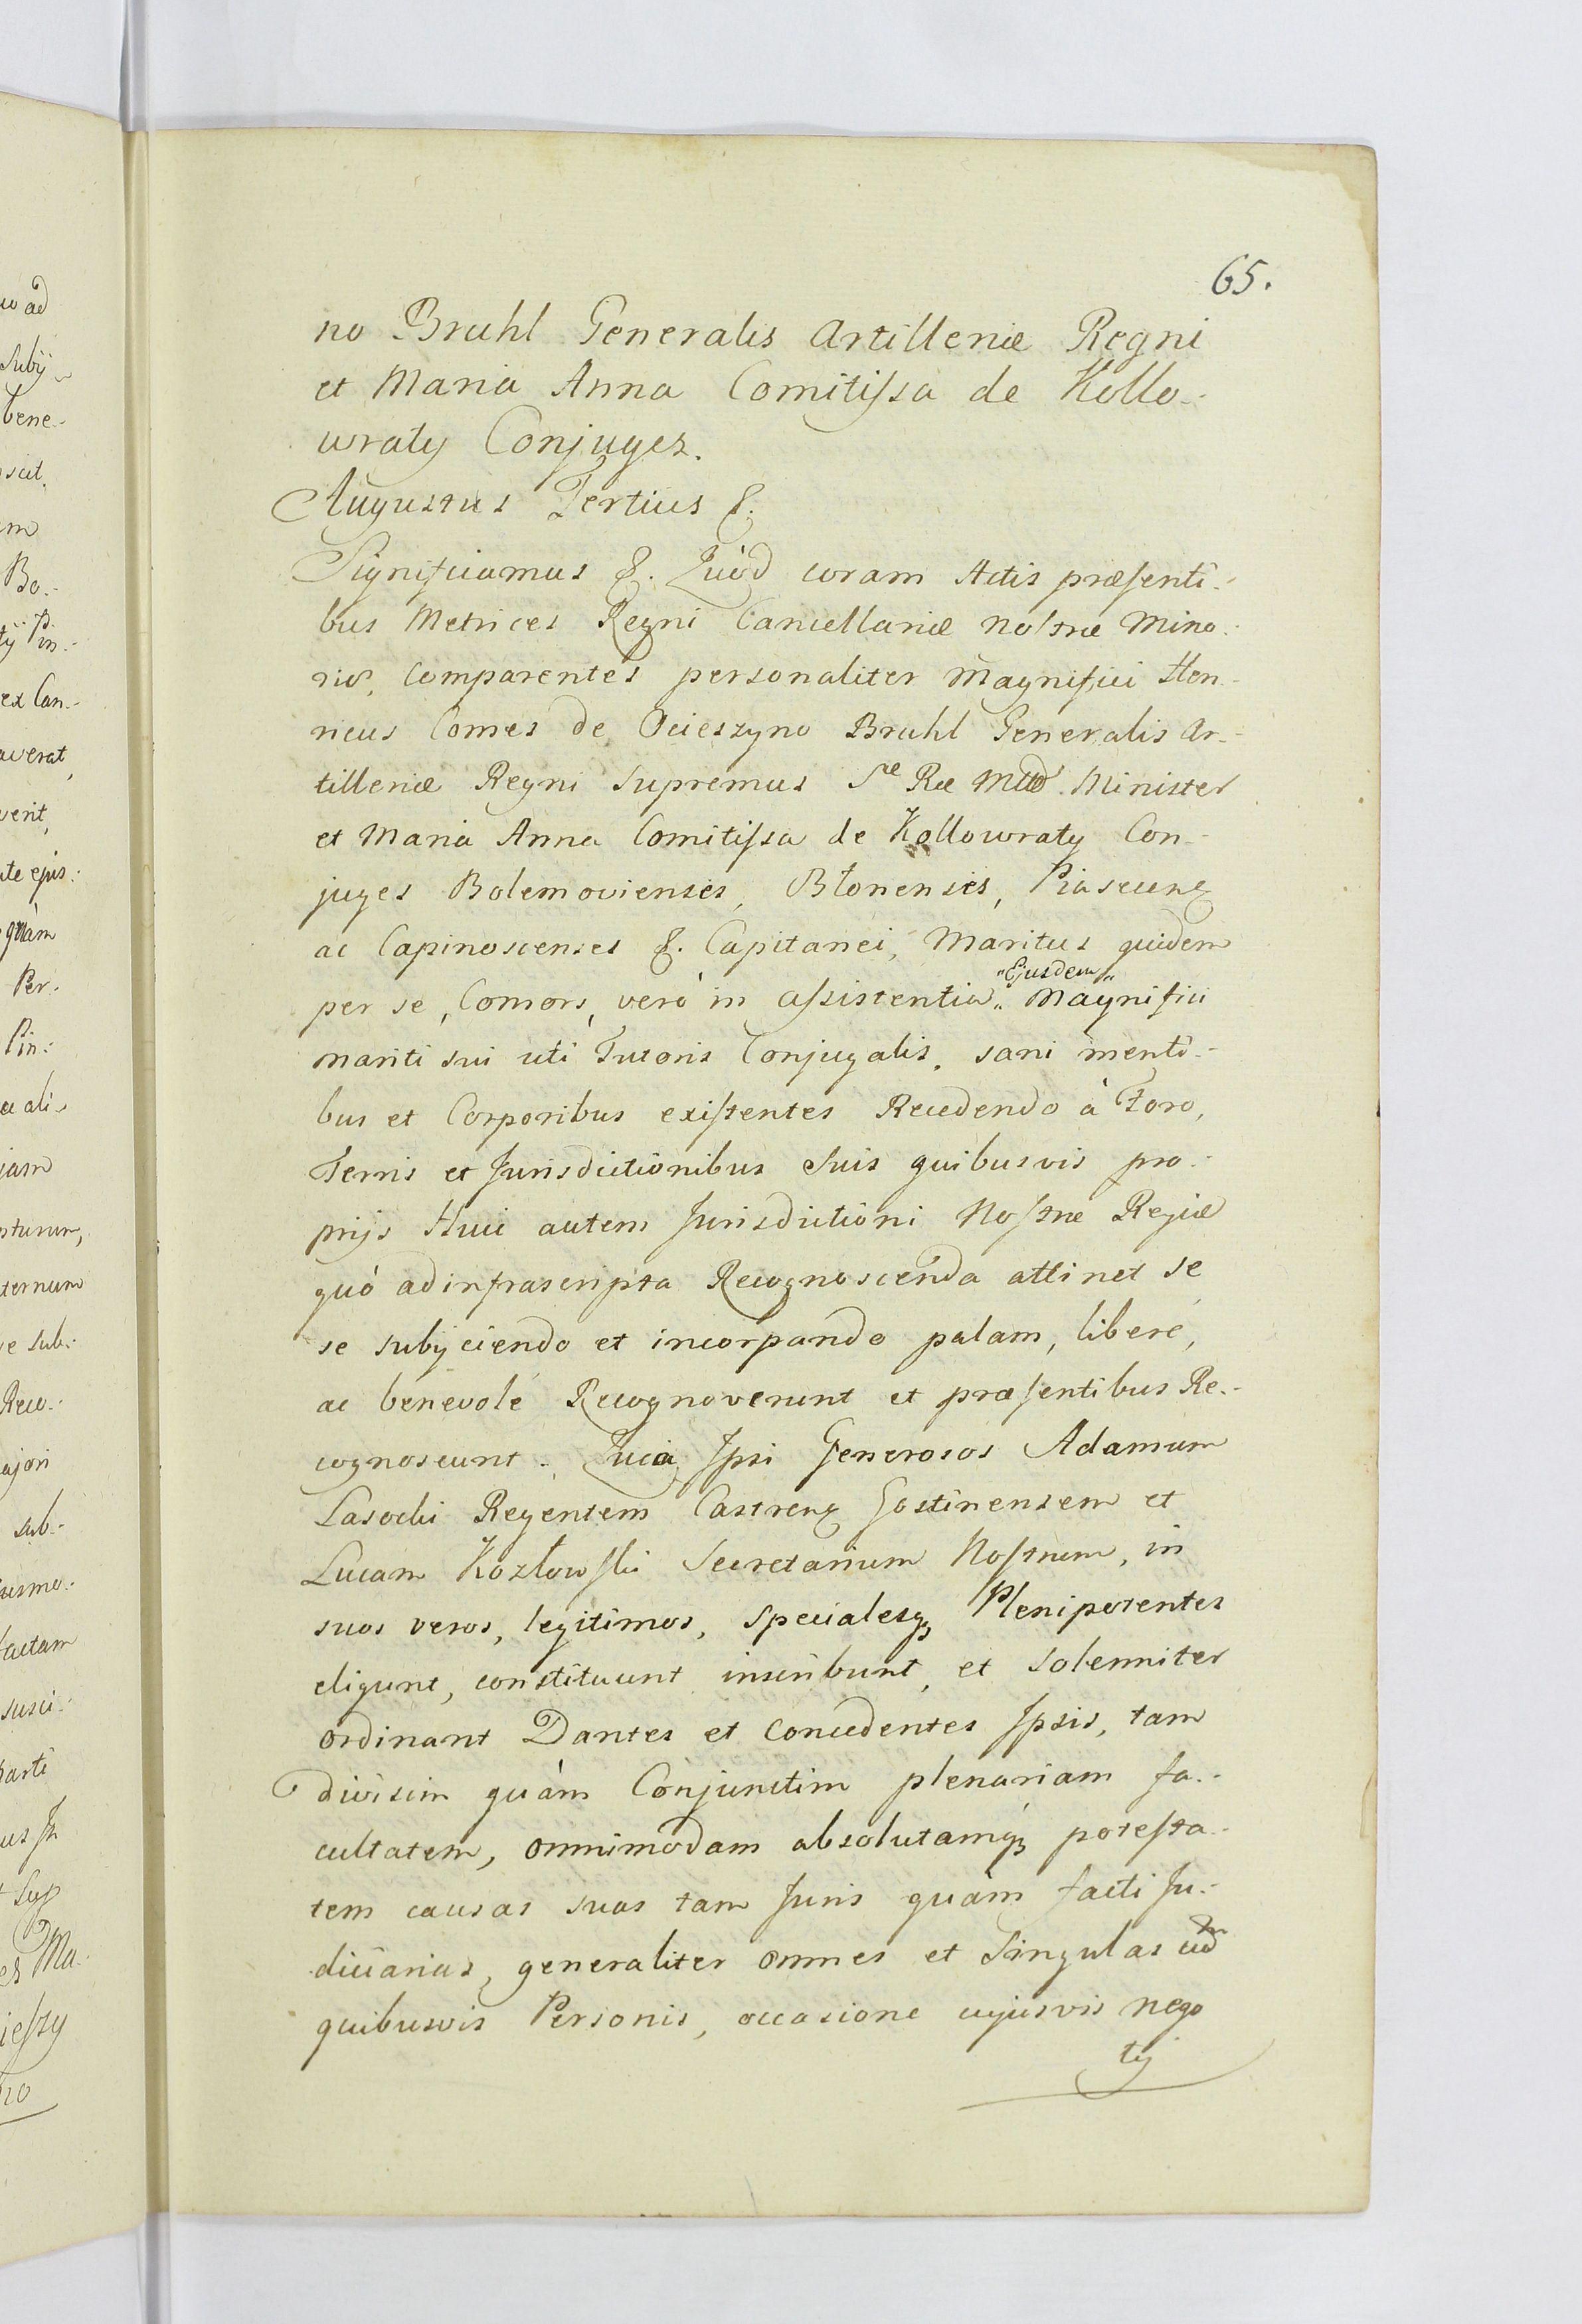 65.
no Bruhl Generalis Artilleriæ Regni
et Maria Anna Comitissa de Kollo-
wraty Conjuges.
Augustus Tertius &.
Significamus &. Quòd coram Actis præsenti-
bus Metrices Regni Cancellariæ Nostræ Mino-
ris, comparentes personaliter Magnifici Hen-
ricus Comes de Ocieszyno Bruhl Generalis Ar-
tilleriæ Regni Supremus Sæ Ræ Mttis Minister
et Maria Anna Comitissa de Kollowraty Con-
juges Bolemovienses, Błonenses, Piasecens
ac Capinoscenses &. Capitanei, Maritus quidem
per se, Consors, verò in assistentia "Ejusdem" Magnifici
mariti sui uti Tutoris Conjugalis, sani menti-
bus et Corporibus existentes Recedendo à Foro,
Terris et Jurisdictionibus Suis quibusvis pro-
prijs Huic autem Jurisdictioni Nostræ Regiæ
quò ad infrascripta Recognoscenda attinet se
se subijciendo et incorpando palam, liberé,
ac benevolé Recognoverunt et præsentibus Re-
cognoscunt. Quia Ipsi Generosos Adamum
Lasocki Regentem Castrens Gostinensem et
Lucam Kozłowski Secretarium Nostrum, in
suos veros, legitimos, specialesq; Plenipotentes
eligunt, constituunt inscribunt, et Solenniter
ordinant Dantes et Concedentes Ipsis, tam
divisim quàm Conjunctim plenariam fa-
cultatem, omnimodam absolutamq; potesta-
tem causas suas tam Juris quàm facti Ju-
diciarias, generaliter omnes et Singulas cum
quibusvis Personis, occasione cujusvis nego
tij